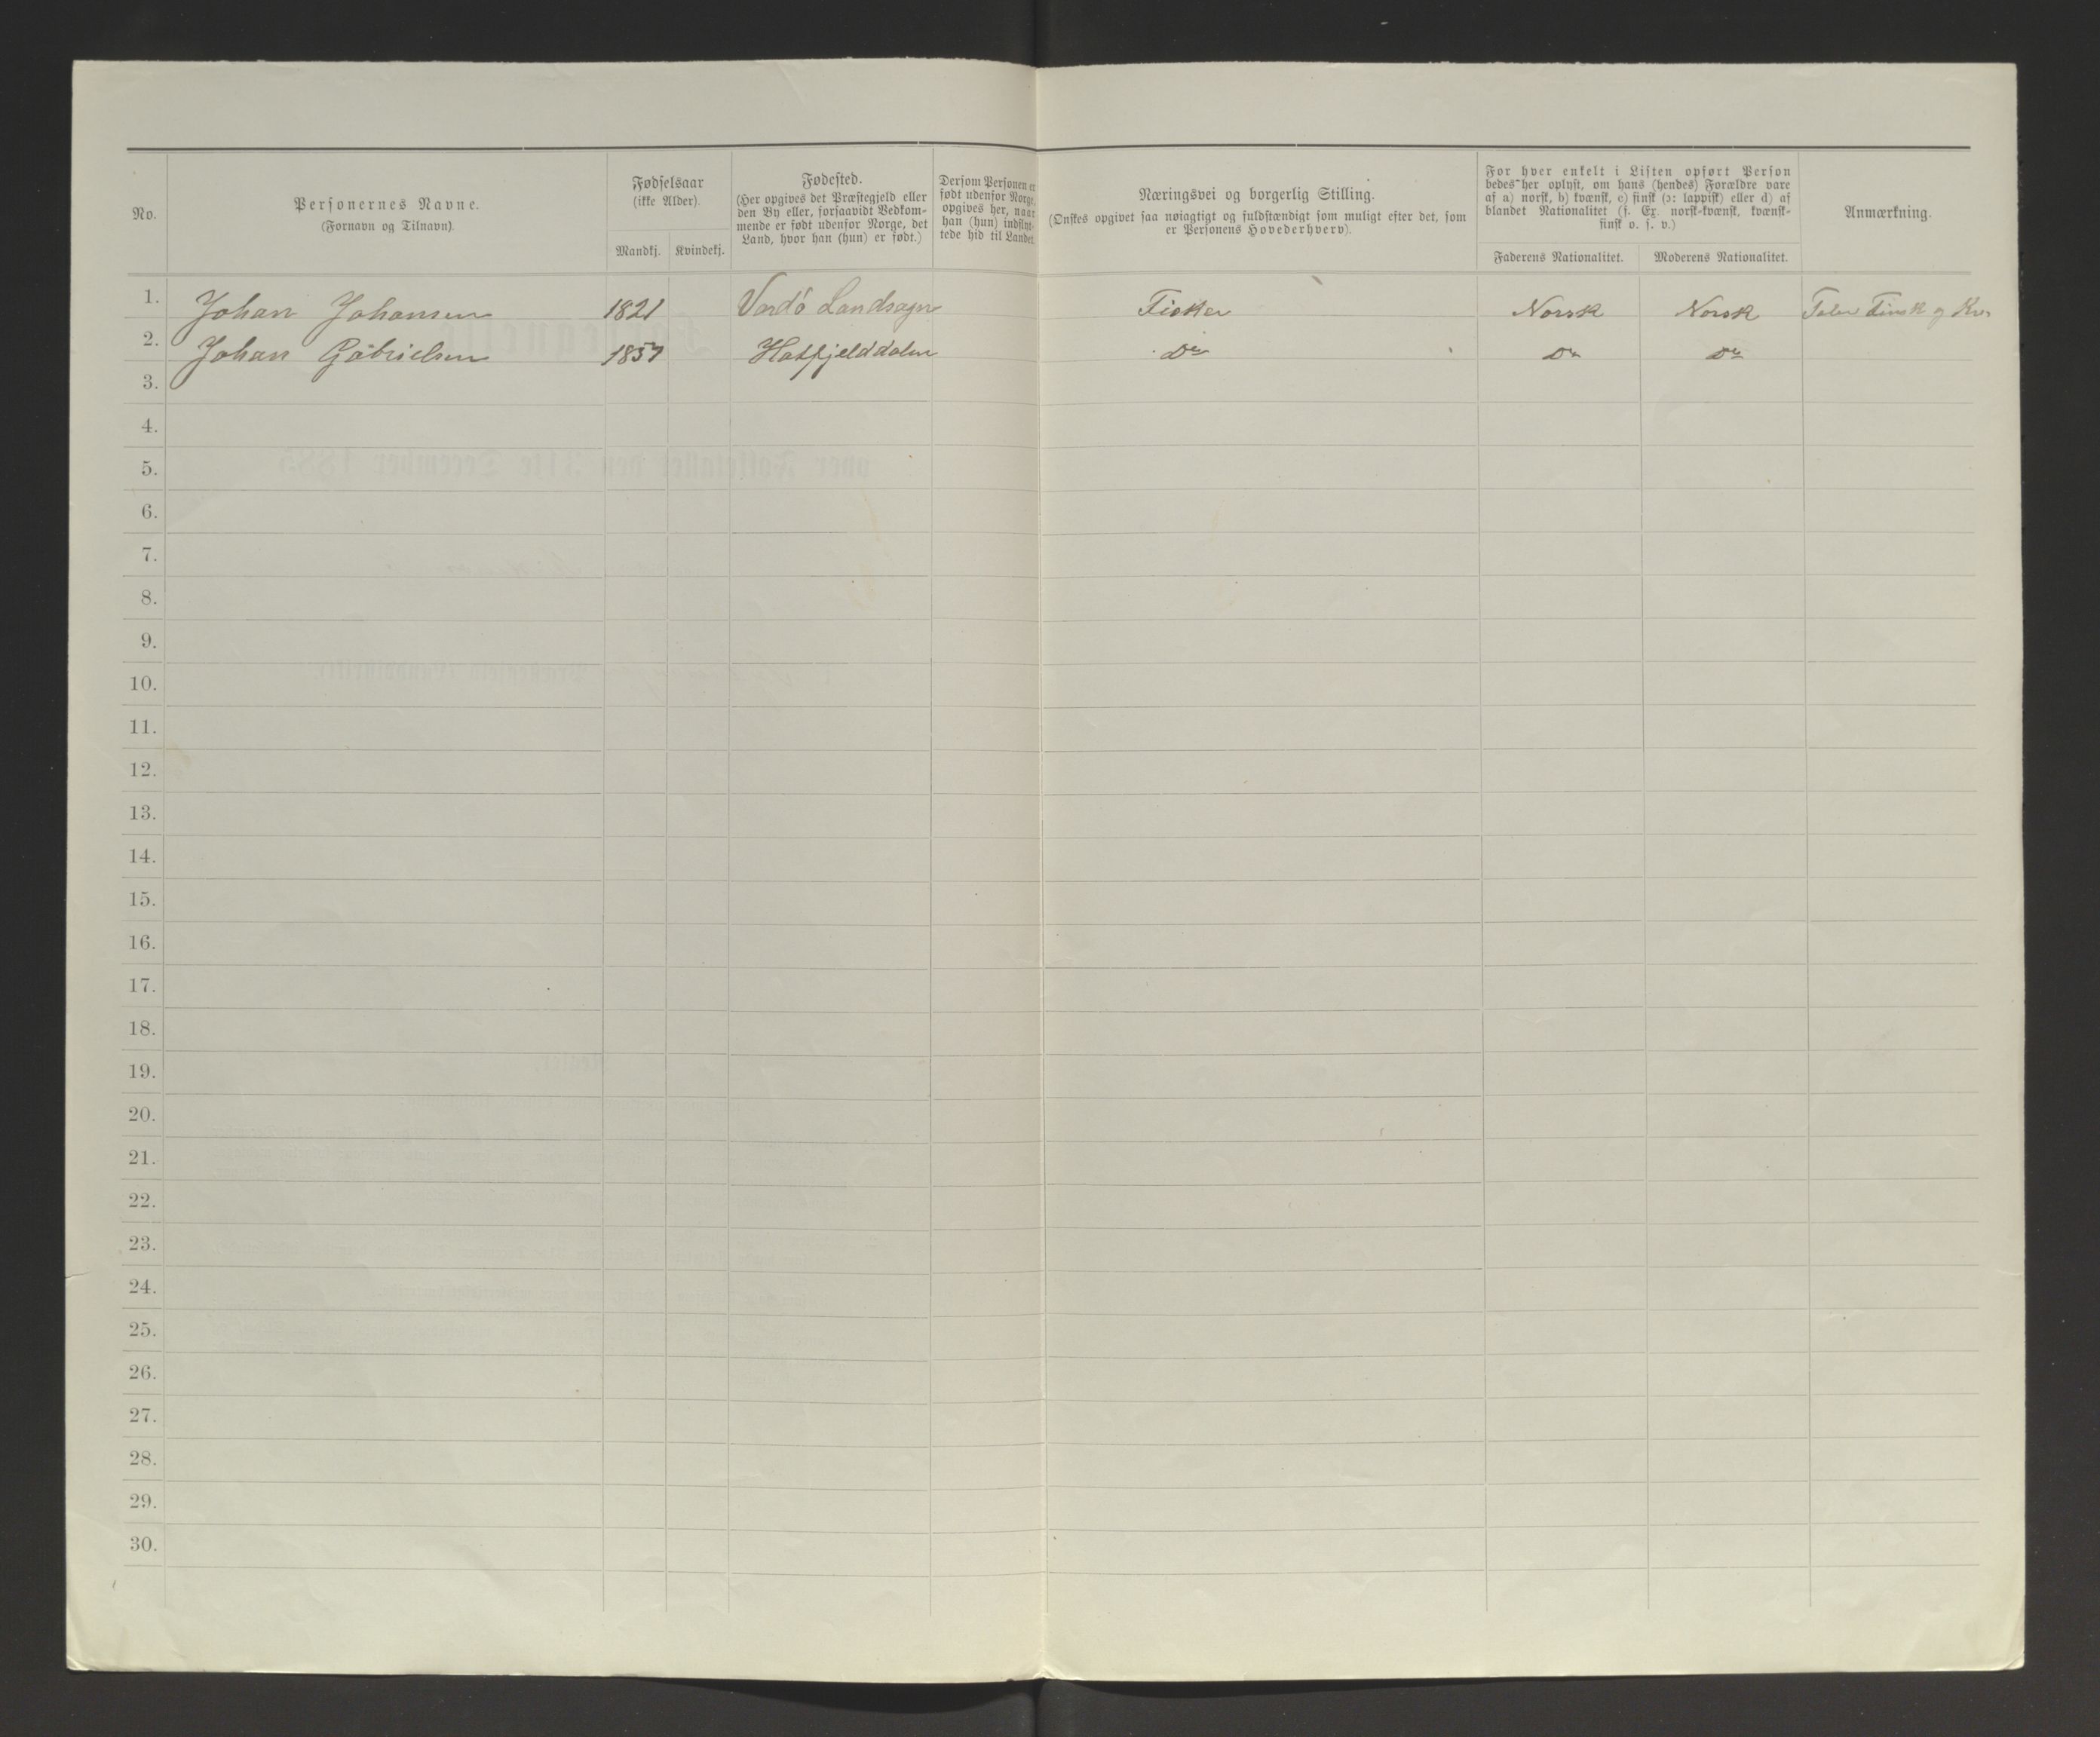 No.
Personernes Navne.
(Fornavn og Tilnavn).
Fødselsaar
(ikke Alder).
Mandkj. Kvindekj.
Fødested.
(Her opgives det Præstegjeld eller
den By eller, forsaavidt Vedkom-
mende er født udenfor Norge, det
Land, hvor han (hun) er født.)
Dersom Personen er
født udenfor Norge,
opgives her, naar
han (hun) indflyt-
tede hid til Landet.
Næringsvei og borgerlig Stilling.
(Ønskes opgivet saa nøiagtigt og fuldstændigt som muligt efter det, som
er Personens Hovederhverv).
For hver enkelt i Listen opført Person
bedes her oplyst, om hans (hendes) Forældre vare
af a) norsk, b) kvænsk, c) finsk (ɔ: lappisk) eller d) af
blandet Nationalitet (f. Ex. norsk-kvænsk, kvænsk-
finsk o. s. v.)
Faderens Nationalitet. Moderens Nationalitet.
Anmærkning.
1. Johan Johansen 1821 Vardö Landsogn Fisker Norsk Norsk Taler Finsk og
2. Johan Gabrielsen 1857 Hatfjelddalen Do Do Do
3.
4.
5.
6.
7.
8.
9.
10.
11.
12.
13.
14.
15.
16.
17.
18.
19.
20.
21.
22.
23.
24.
25.
26.
27.
28.
29.
30.